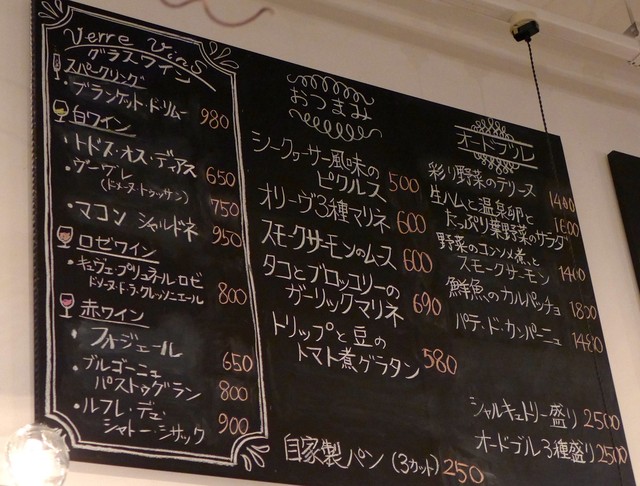 Verre Vins
グラスワイン
スパークリング
・ブランケット・ド・リムー 980
白ワイン
・トドス・オス・ディアス 650
・ヴーヴレ
(ドメーヌ・トゥッサン) 750
・マコン シャルドネ 950
ロゼワイン
・キュヴェ・プリュネール・ロゼ
ドメーヌ・ド・ラ・クレッソニエール 800
赤ワイン
・フォジェール 650
・ブルゴーニュ
パストゥグラン 800
・ルフレ・デュ
シャトー・シサック 900
おつまみ
シークヮーサー風味の
ピクルス 500
オリーヴ3種マリネ 600
スモークサーモンのムース 600
タコとブロッコリーの
ガーリックマリネ 690
トリップと豆の
トマト煮グラタン 580
自家製パン (3カット) 250
オードブル
彩り野菜のテリーヌ 1400
生ハムと温泉卵と
たっぷり葉野菜のサラダ 1600
野菜のコンソメ煮と
スモークサーモン 1400
鮮魚のカルパッチョ 1800
パテ・ド・カンパーニュ 1480
シャルキュトリー盛り 2500
オードブル3種盛り 2500